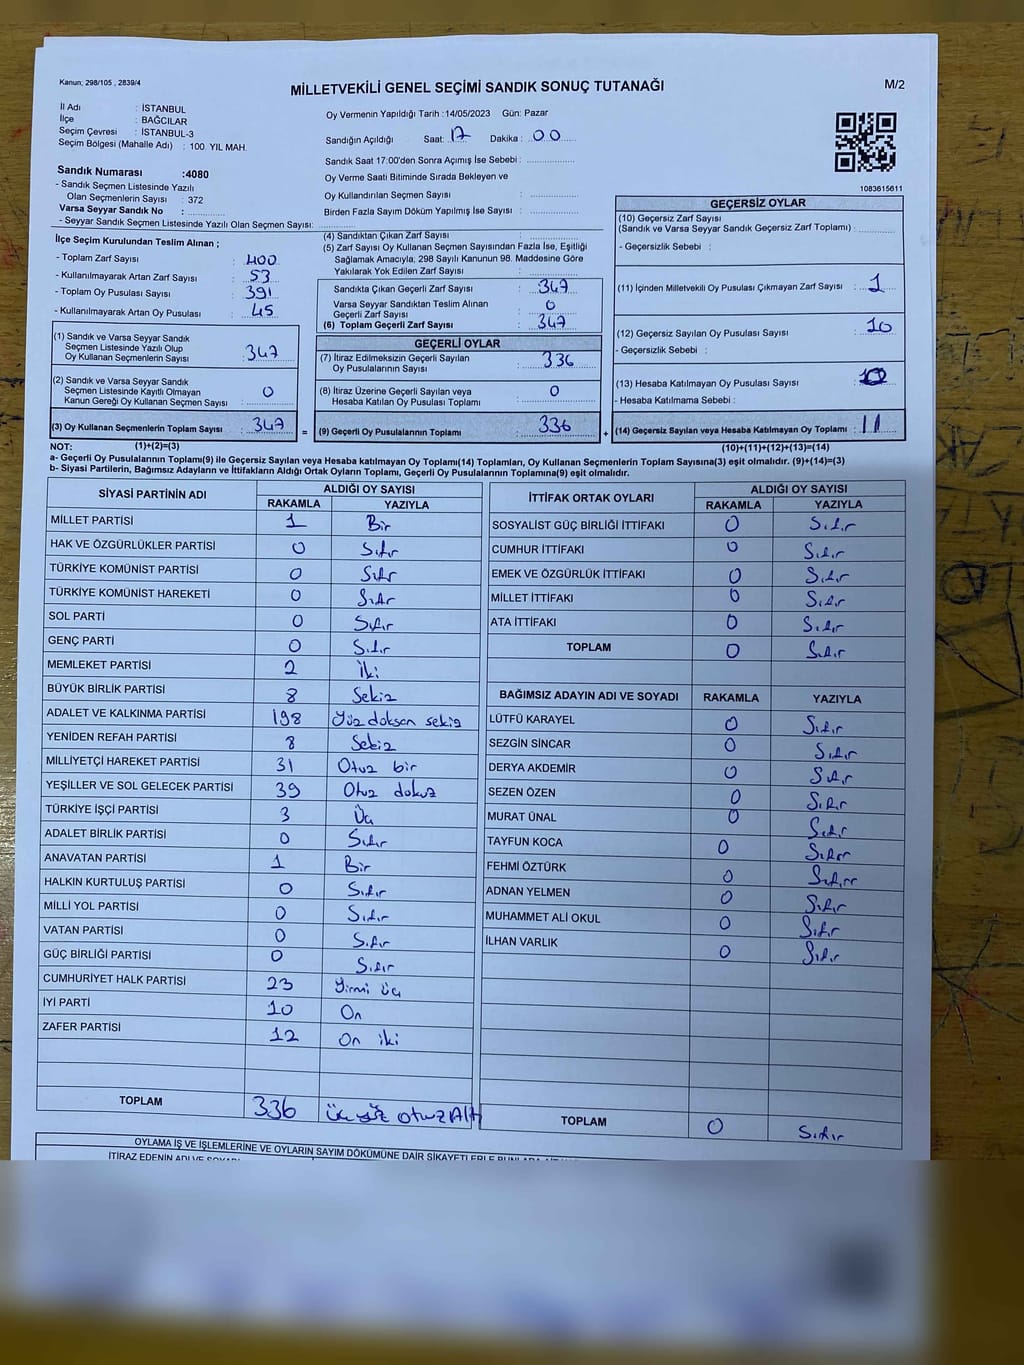 Kanun; 298/105 , 2839/4
MİLLETVEKİLİ GENEL SEÇİMİ SANDIK SONUÇ TUTANAĞI
M/2
İl Adı : İSTANBUL
İlçe : BAĞCILAR
Seçim Çevresi : İSTANBUL-3
Seçim Bölgesi (Mahalle Adı) : 100. YIL MAH.
Sandık Numarası :4080
- Sandık Seçmen Listesinde Yazılı
Olan Seçmenlerin Sayısı : 372
Varsa Seyyar Sandık No :
- Seyyar Sandık Seçmen Listesinde Yazılı Olan Seçmen Sayısı:
Oy Vermenin Yapıldığı Tarih :14/05/2023 Gün: Pazar
Sandığın Açıldığı Saat: 17 Dakika : 00
Sandık Saat 17:00'den Sonra Açımış İse Sebebi :
Oy Verme Saati Bitiminde Sırada Bekleyen ve
Oy Kullandırılan Seçmen Sayısı :
Birden Fazla Sayım Döküm Yapılmış İse Sayısı :
1083615611
İlçe Seçim Kurulundan Teslim Alınan ;
- Toplam Zarf Sayısı : 400
- Kullanılmayarak Artan Zarf Sayısı : 53
- Toplam Oy Pusulası Sayısı : 391
- Kullanılmayarak Artan Oy Pusulası : 45
(1) Sandık ve Varsa Seyyar Sandık
Seçmen Listesinde Yazılı Olup
Oy Kullanan Seçmenlerin Sayısı : 347
(2) Sandık ve Varsa Seyyar Sandık
Seçmen Listesinde Kayıtlı Olmayan
Kanun Gereği Oy Kullanan Seçmen Sayısı : 0
(3) Oy Kullanan Seçmenlerin Toplam Sayısı : 347
(4) Sandıktan Çıkan Zarf Sayısı :
(5) Zarf Sayısı Oy Kullanan Seçmen Sayısından Fazla İse, Eşitliği
Sağlamak Amacıyla, 298 Sayılı Kanunun 98. Maddesine Göre
Yakılarak Yok Edilen Zarf Sayısı :
Sandıkta Çıkan Geçerli Zarf Sayısı : 347
Varsa Seyyar Sandıktan Teslim Alınan
Geçerli Zarf Sayısı : 0
(6) Toplam Geçerli Zarf Sayısı : 347
GEÇERLİ OYLAR
(7) İtiraz Edilmeksizin Geçerli Sayılan
Oy Pusulalarının Sayısı : 336
(8) İtiraz Üzerine Geçerli Sayılan veya
Hesaba Katılan Oy Pusulası Toplamı : 0
= (9) Geçerli Oy Pusulalarının Toplamı : 336
GEÇERSİZ OYLAR
(10) Geçersiz Zarf Sayısı
(Sandık ve Varsa Seyyar Sandık Geçersiz Zarf Toplamı) :
- Geçersizlik Sebebi :
(11) İçinden Milletvekili Oy Pusulası Çıkmayan Zarf Sayısı : 1
(12) Geçersiz Sayılan Oy Pusulası Sayısı : 10
- Geçersizlik Sebebi :
(13) Hesaba Katılmayan Oy Pusulası Sayısı :
- Hesaba Katılmama Sebebi :
+ (14) Geçersiz Sayılan veya Hesaba Katılmayan Oy Toplamı : 11
NOT: (1)+(2)=(3)
(10)+(11)+(12)+(13)=(14)
a- Geçerli Oy Pusulaları Toplamı(9) ile Geçersiz Sayılan veya Hesaba katılmayan Oy Toplamı(14) Toplamları, Oy Kullanan Seçmenlerin Toplam Sayısına(3) eşit olmalıdır. (9)+(14)=(3)
b- Siyasi Partilerin, Bağımsız Adayların ve İttifakların Aldığı Ortak Oyların Toplamı, Geçerli Oy Pusulalarının Toplamına(9) eşit olmalıdır.
SİYASİ PARTİNİN ADI ALDIĞI OY SAYISI
RAKAMLA YAZIYLA
MİLLET PARTİSİ 1 Bir
HAK VE ÖZGÜRLÜKLER PARTİSİ 0 Sıfır
TÜRKİYE KOMÜNİST PARTİSİ 0 Sıfır
TÜRKİYE KOMÜNİST HAREKETİ 0 Sıfır
SOL PARTİ 0 Sıfır
GENÇ PARTİ 0 Sıfır
MEMLEKET PARTİSİ 2 İki
BÜYÜK BİRLİK PARTİSİ 8 Sekiz
ADALET VE KALKINMA PARTİSİ 198 Yüz doksan sekiz
YENİDEN REFAH PARTİSİ 8 Sekiz
MİLLİYETÇİ HAREKET PARTİSİ 31 Otuz bir
YEŞİLLER VE SOL GELECEK PARTİSİ 39 Otuz dokuz
TÜRKİYE İŞÇİ PARTİSİ 3 Üç
ADALET BİRLİK PARTİSİ 0 Sıfır
ANAVATAN PARTİSİ 1 Bir
HALKIN KURTULUŞ PARTİSİ 0 Sıfır
MİLLİ YOL PARTİSİ 0 Sıfır
VATAN PARTİSİ 0 Sıfır
GÜÇ BİRLİĞİ PARTİSİ 0 Sıfır
CUMHURİYET HALK PARTİSİ 23 Yirmi üç
İYİ PARTİ 10 On
ZAFER PARTİSİ 12 On iki
TOPLAM 336 Üç yüz otuz Altı
İTTİFAK ORTAK OYLARI ALDIĞI OY SAYISI
RAKAMLA YAZIYLA
SOSYALİST GÜÇ BİRLİĞİ İTTİFAKI 0 Sıfır
CUMHUR İTTİFAKI 0 Sıfır
EMEK VE ÖZGÜRLÜK İTTİFAKI 0 Sıfır
MİLLET İTTİFAKI 0 Sıfır
ATA İTTİFAKI 0 Sıfır
TOPLAM 0 Sıfır
BAĞIMSIZ ADAYIN ADI VE SOYADI RAKAMLA YAZIYLA
LÜTFÜ KARAYEL 0 Sıfır
SEZGİN SİNCAR 0 Sıfır
DERYA AKDEMİR 0 Sıfır
SEZEN ÖZEN 0 Sıfır
MURAT ÜNAL 0 Sıfır
TAYFUN KOCA 0 Sıfır
FEHMİ ÖZTÜRK 0 Sıfır
ADNAN YELMEN 0 Sıfır
MUHAMMET ALİ OKUL 0 Sıfır
İLHAN VARLIK 0 Sıfır
TOPLAM 0 Sıfır
OYLAMA İŞ VE İŞLEMLERİNE VE OYLARIN SAYIM DÖKÜMÜNE DAİR ŞİKAYETLERLE
İTİRAZ EDENİN ADI VE